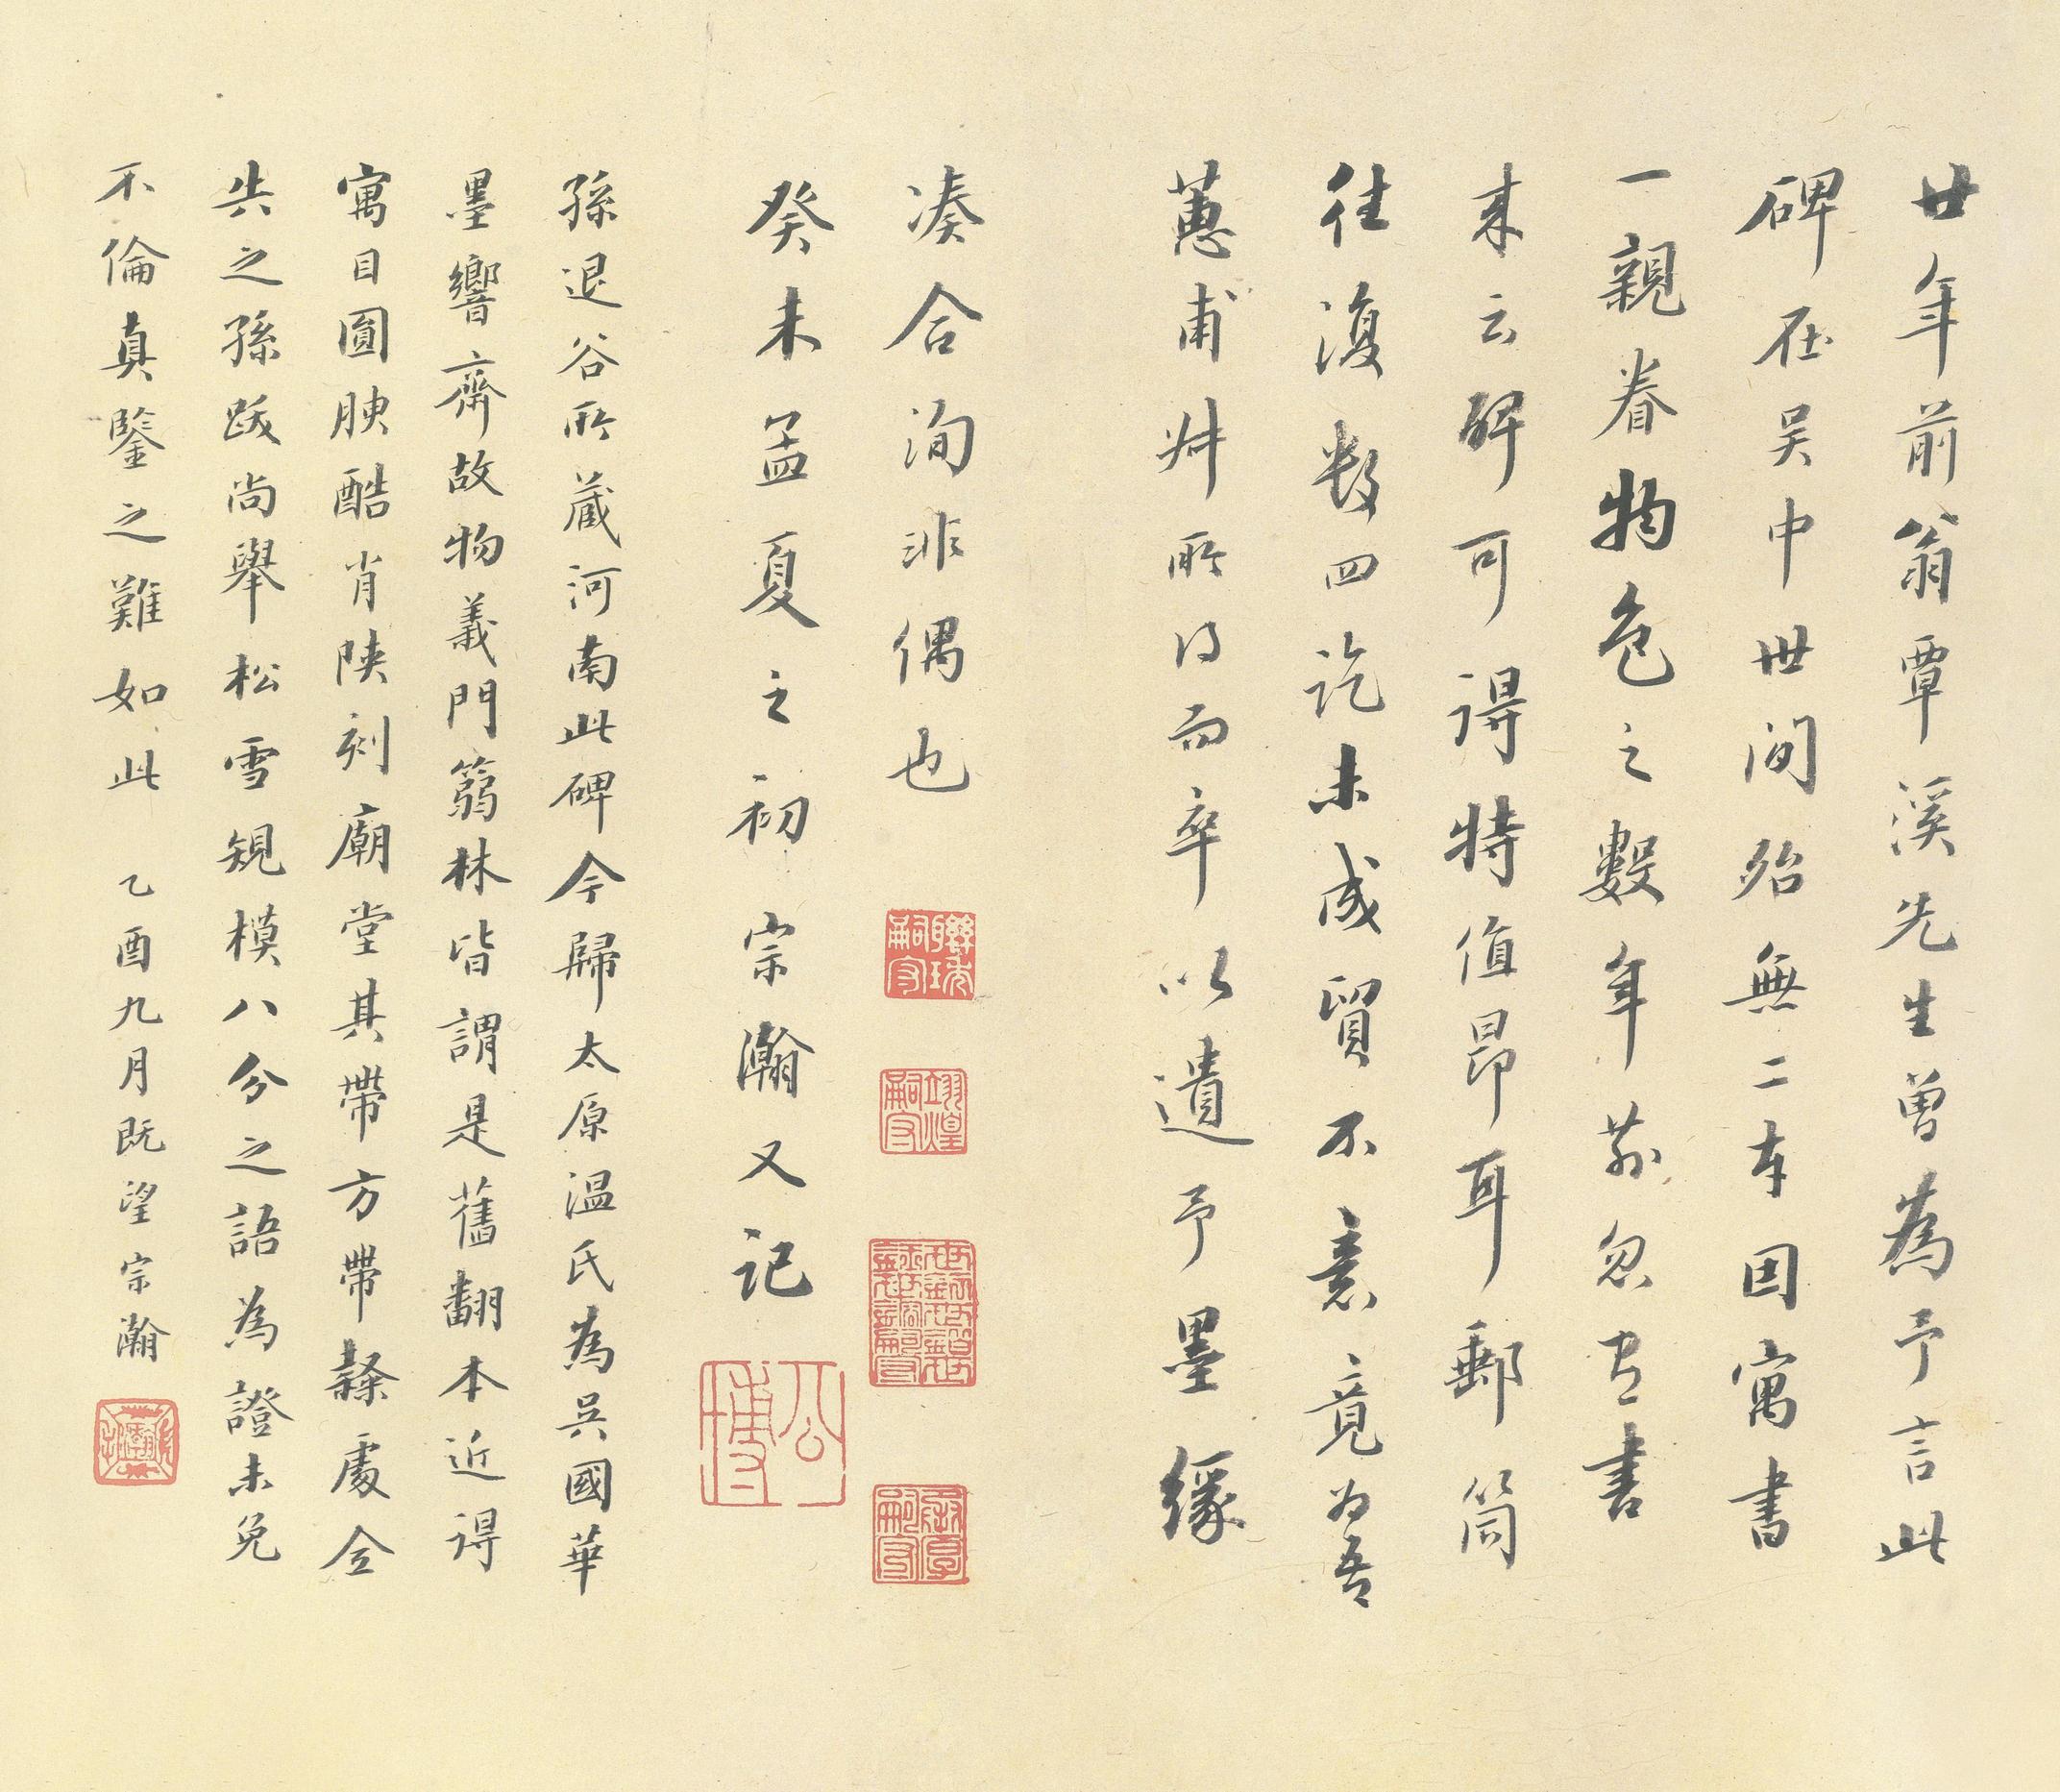 廿年前翁覃溪先生曾為予言此
碑在吴中世間殆無二本因寓書
一親眷物色之數年前忽有書
来云碑可得特值昂耳郵筒
往復數四訖未成貿不意竟为吾
蕙甫舛所得而卒以遺予墨緣
凑合洵非偶也
癸未孟夏之初 宗瀚又記
公博
孫退谷所蔵河南此碑今歸太原温氏為吳國華
墨響齋故物義門篛林皆謂是舊翻本近得
寓目圓腴酷肖陝刻廟堂其帶方帶隸處全
失之孫跋尚舉松雪規模八分之語為證未免
不倫真鑒之難如此 乙酉九月既望宗瀚